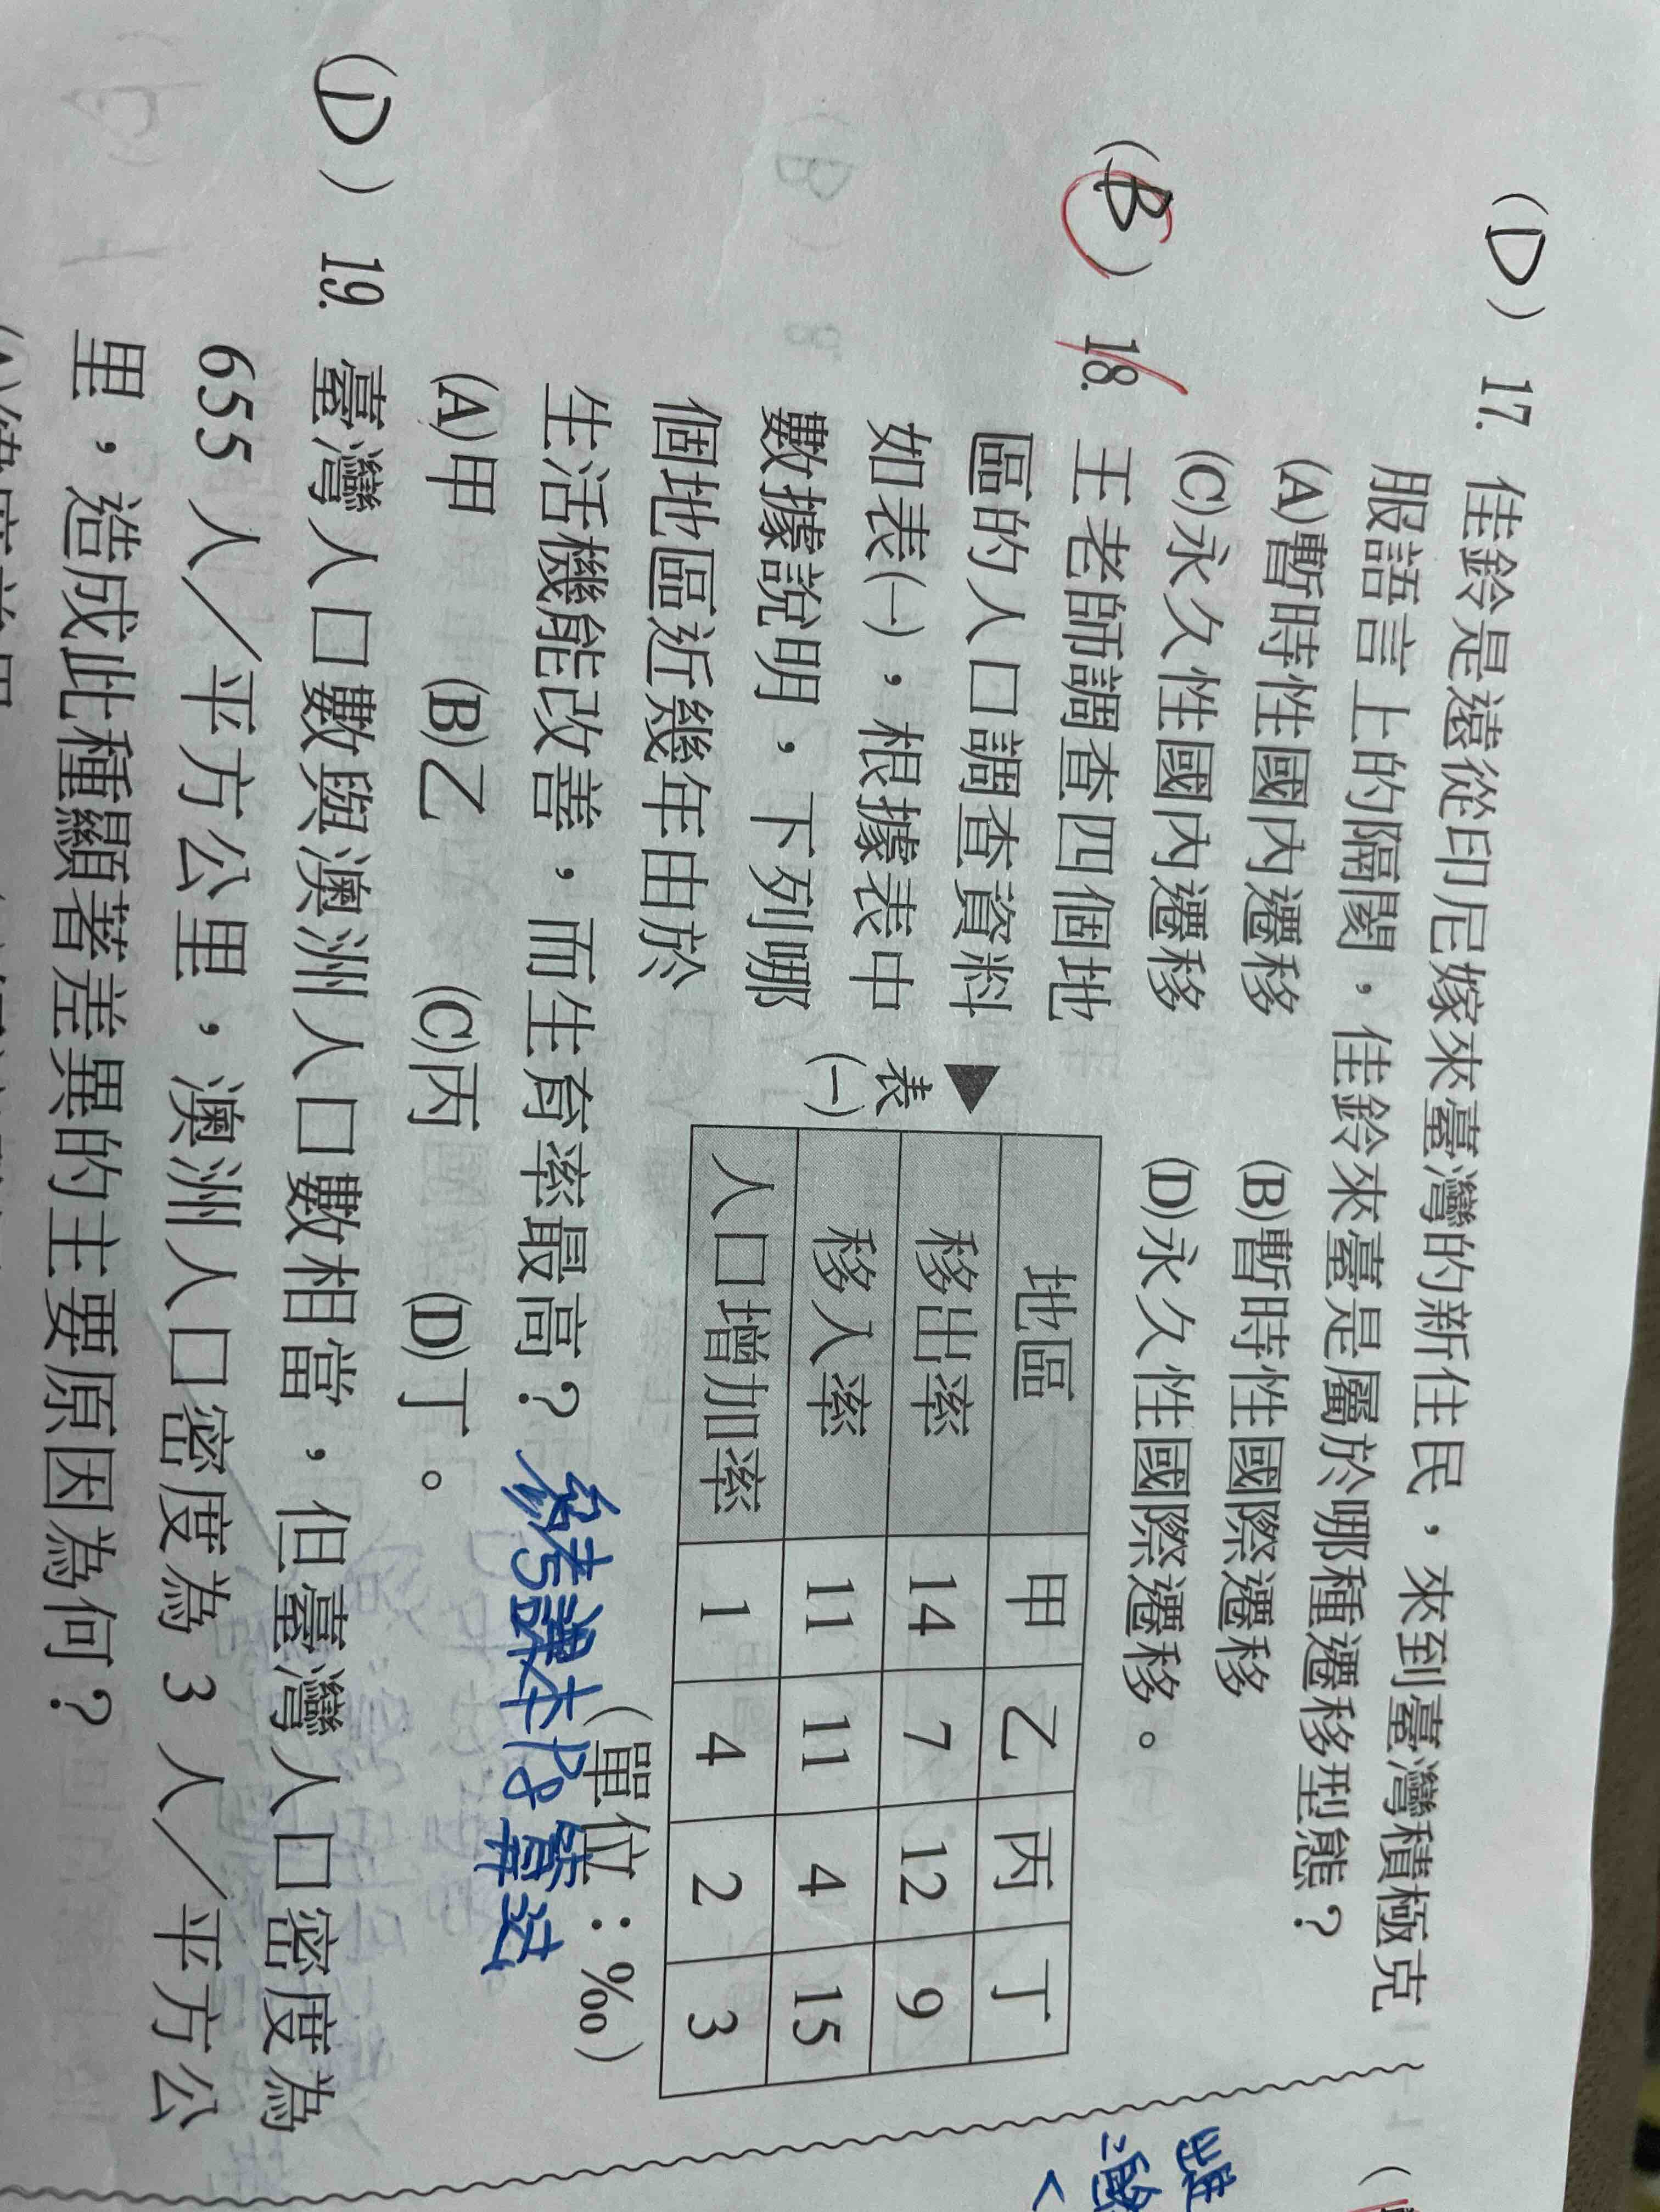 (D) 17. 佳鈴是遠從印尼嫁來臺灣的新住民，來到臺灣積極克
服語言上的隔閡，佳鈴來臺是屬於哪種遷移型態？
(A)暫時性國內遷移 (B)暫時性國際遷移
(C)永久性國內遷移 (D)永久性國際遷移。
(B) 18. 王老師調查四個地
區的人口調查資料
如表(一)，根據表中
數據說明，下列哪
個地區近幾年由於
生活機能改善，而生育率最高？
▲表(一)
地區 甲 乙 丙 丁
移出率 14 7 12 9
移入率 11 11 4 15
人口增加率 1 4 2 3
（單位：‰）
(A)甲 (B)乙 (C)丙 (D)丁。
參考課本P8算法
(D) 19. 臺灣人口數與澳洲人口數相當，但臺灣人口密度為
655 人／平方公里，澳洲人口密度為 3 人／平方公
里，造成此種顯著差異的主要原因為何？